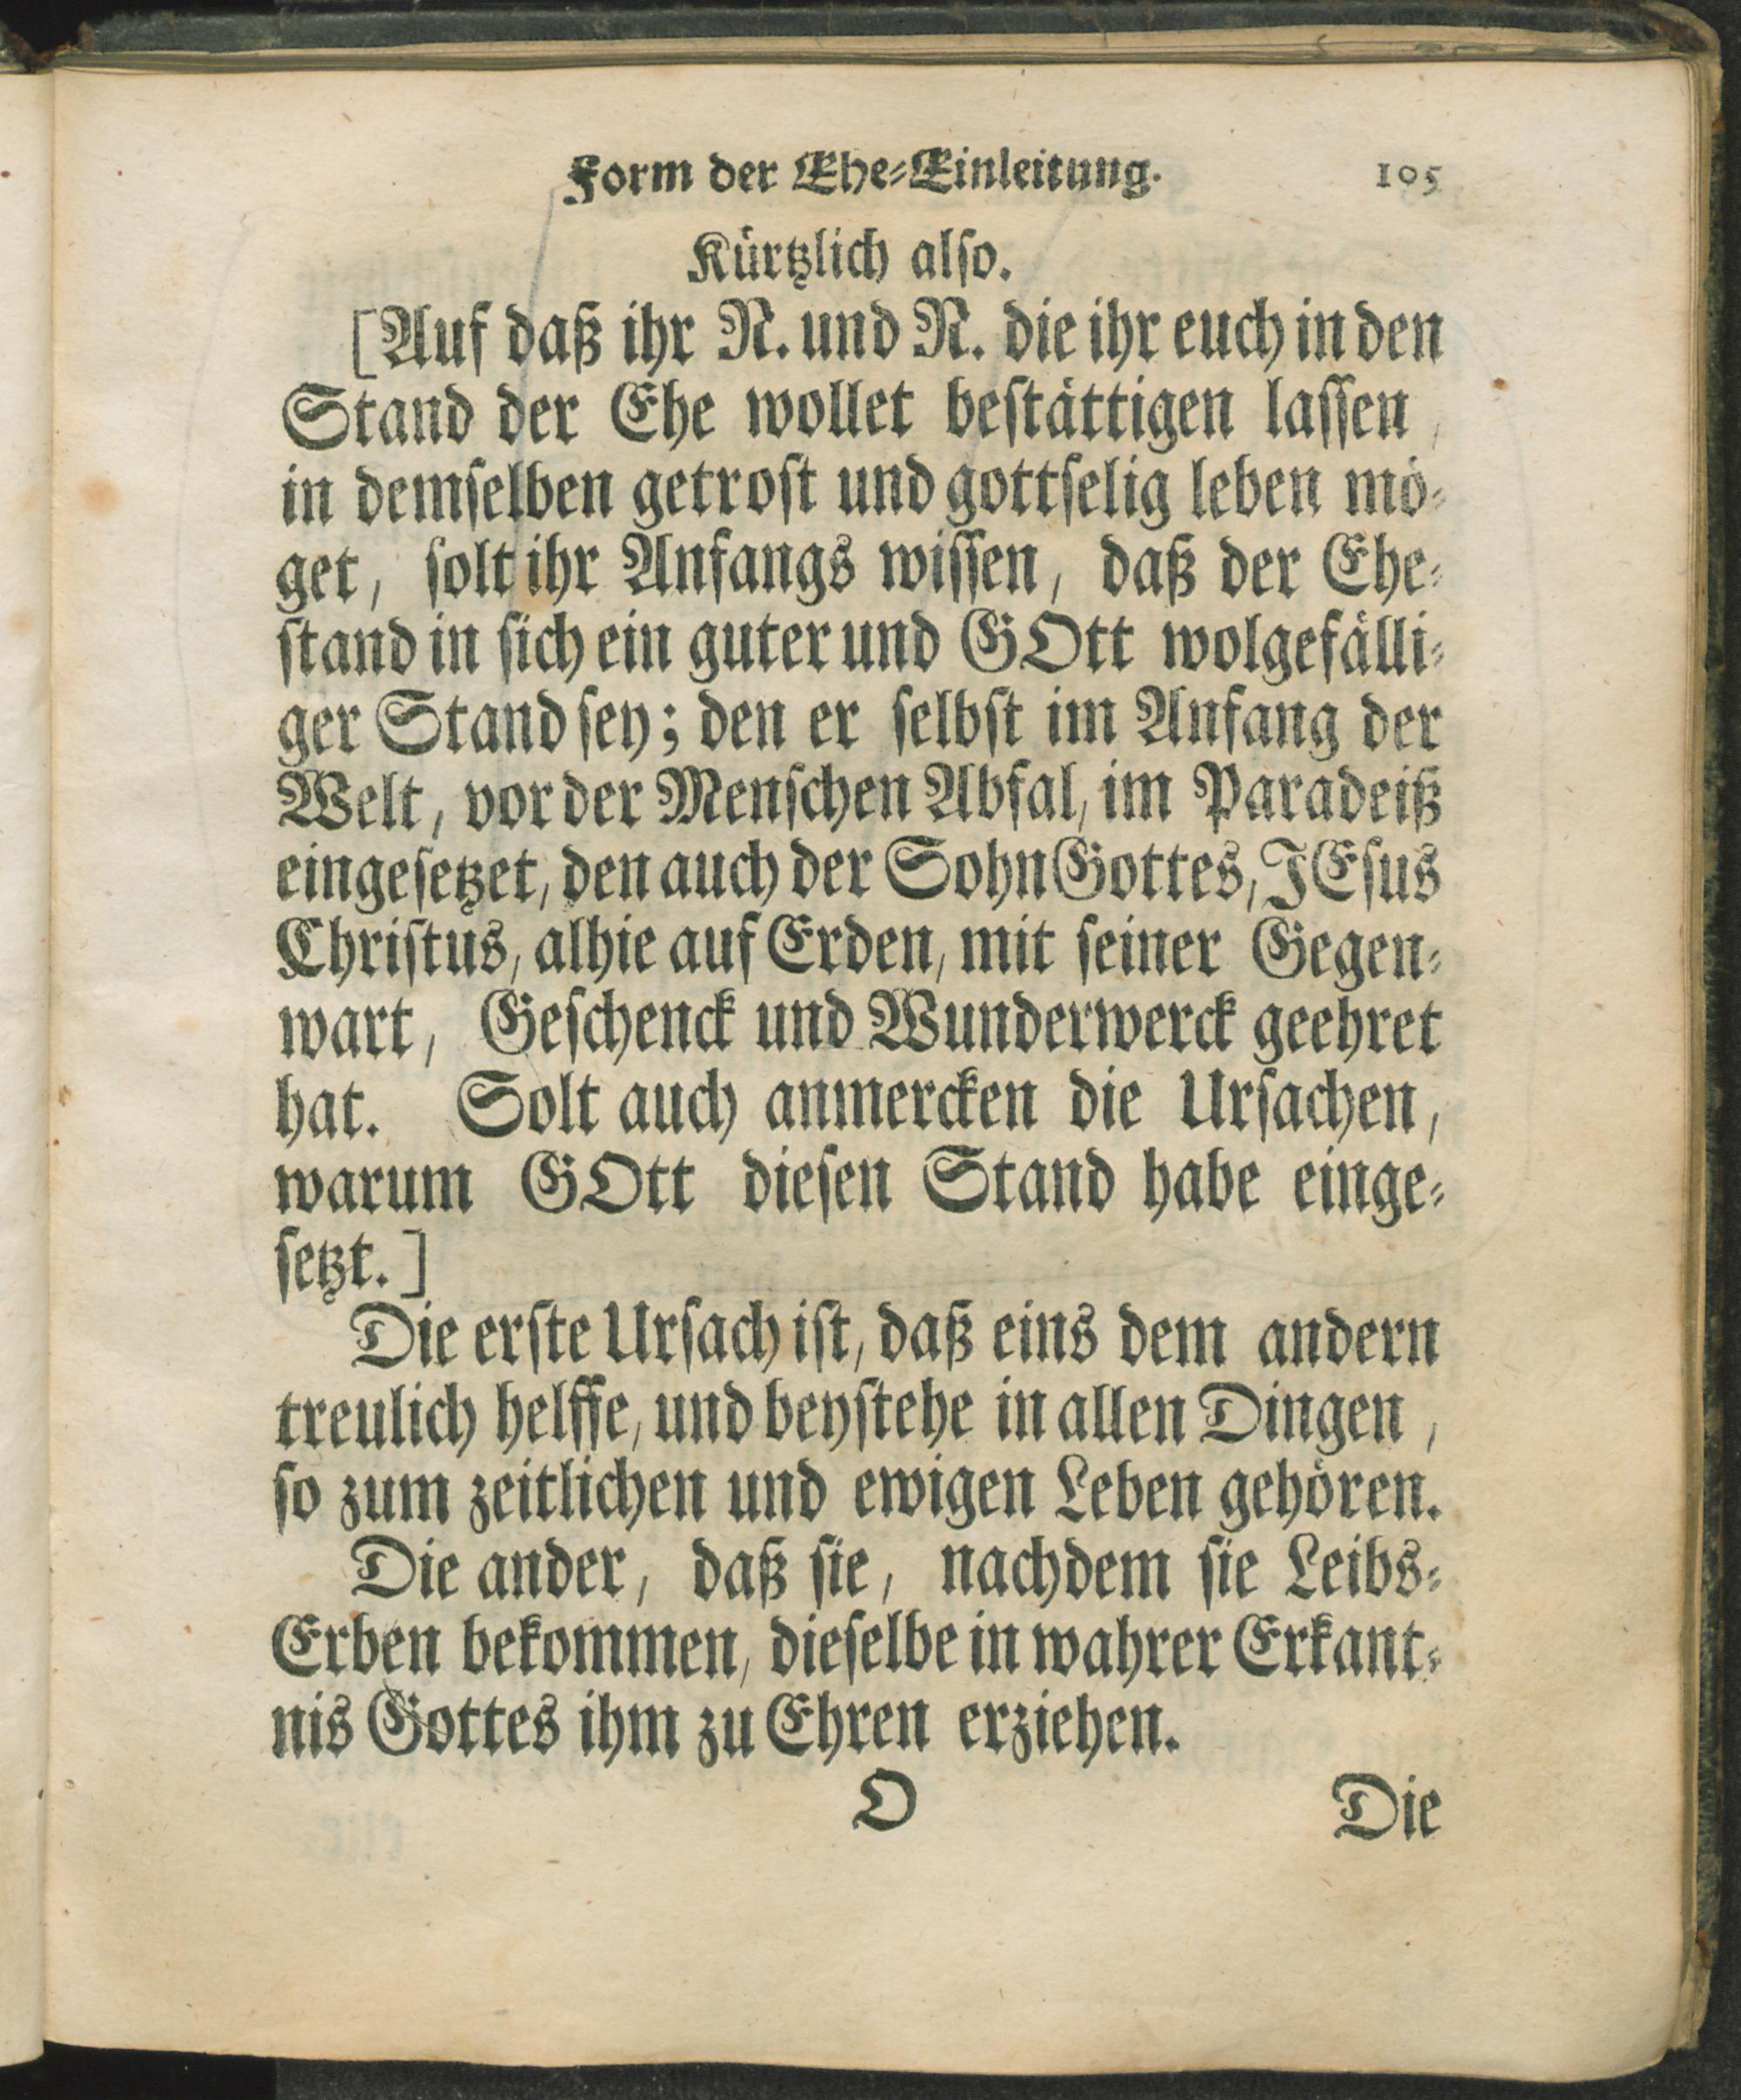 Form der Ehe-Einleitung. 105
Kürtzlich also.
[Auf daß ihr N. und N. die ihr euch in den
Stand der Ehe wollet bestättigen lassen,
in demselben getrost und gottselig leben mö-
get, solt ihr Anfangs wissen, daß der Ehe-
stand in sich ein guter und GOtt wolgefälli-
ger Stand sey; den er selbst im Anfang der
Welt, vor der Menschen Abfal, im Paradeiß
eingesetzet, den auch der Sohn Gottes, JEsus
Christus, alhie auf Erden, mit seiner Gegen-
wart, Geschenck und Wunderwerck geehret
hat. Solt auch anmercken die Ursachen,
warum GOtt diesen Stand habe einge-
setzt.]
Die erste Ursach ist, daß eins dem andern
treulich helffe, und beystehe in allen Dingen,
so zum zeitlichen und ewigen Leben gehören.
Die ander, daß sie, nachdem sie Leibs-
Erben bekommen, dieselbe in wahrer Erkant-
nis Gottes ihm zu Ehren erziehen.
O Die